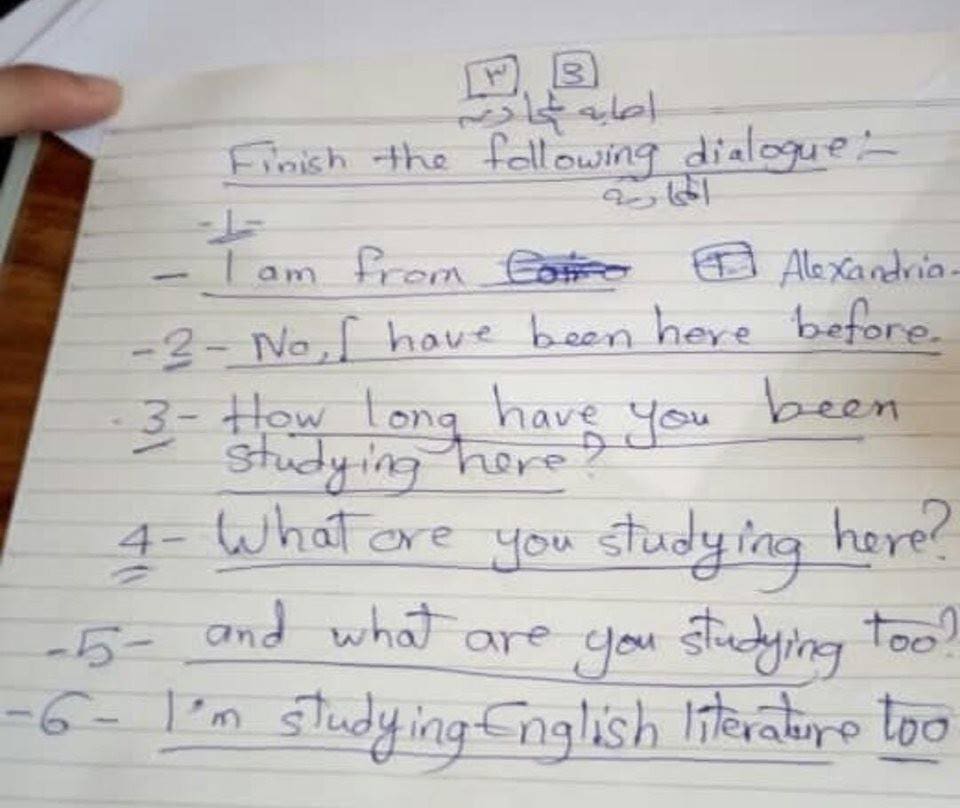 ٣ 3
اجابة المحادثة
Finish the following dialogue:-
المحادثة
-1-
- I am from Alexandria.
-2- No, I have been here before.
3- How long have you been
studying here?
4- What are you studying here?
-5- and what are you studying too?
-6- I'm studying English literature too